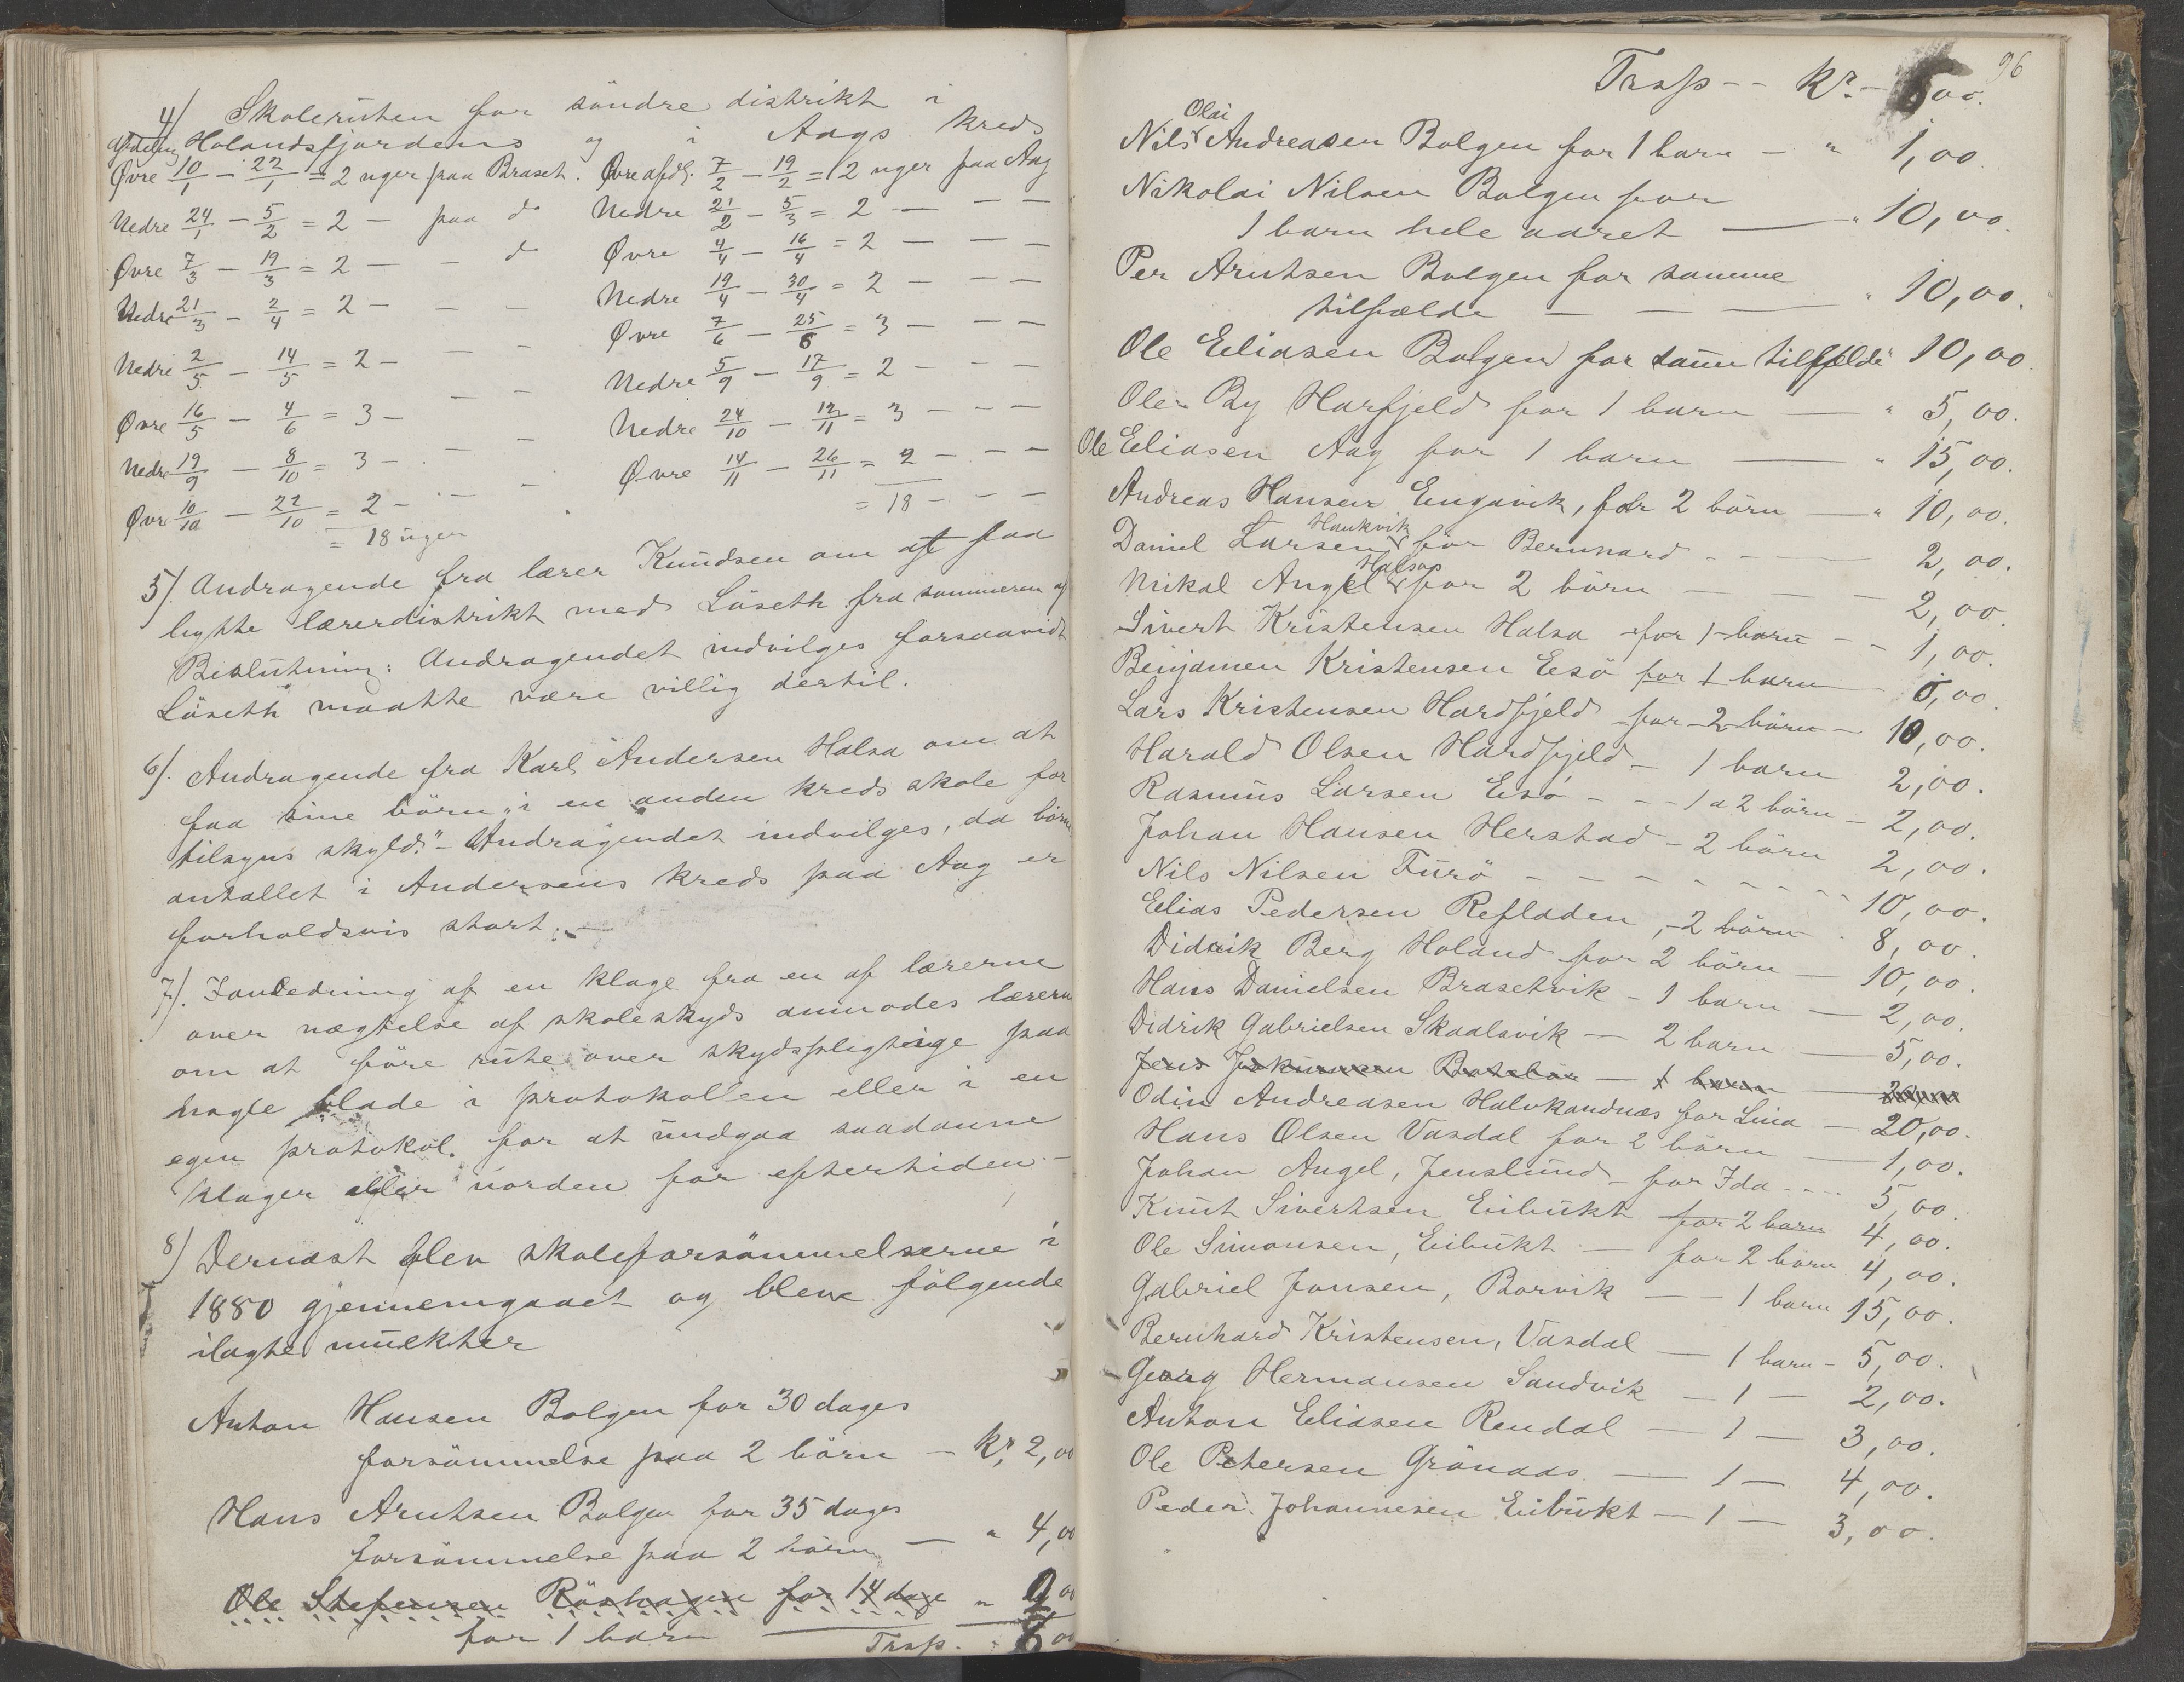 4) Skoleruten for söndre distrikt i
Holandsfjordens og i Aags kreds
Øvre 10/1 - 22/1 = 2 uger paa Braset. Øvre afdl. 7/2 - 19/2 = 2 uger paa Aag
Nedre 24/1 - 5/2 = 2 — paa do Nedre 21/2 - 5/3 = 2 — — —
Øvre 7/3 - 19/3 = 2 — - do Øvre 4/4 - 16/4 = 2 — — —
Nedre 21/3 - 2/4 = 2 - - - Nedre 19/4 - 30/4 = 2 — — —
Nedre 2/5 - 14/5 = 2 - - - Øvre 7/6 - 25/6 = 3 — — —
Øvre 16/5 - 4/6 = 3 - - - Nedre 5/9 - 17/9 = 2 - — —
Nedre 19/9 - 8/10 = 3 - - - Nedre 24/10 - 12/11 = 3 - — —
Øvre 10/10 - 22/10 = 2 - - - Øvre 14/11 - 26/11 = 2 - — —
= 18 uger = 18 - — —
5) Andragende fra lærer Knudsen om at faa
bytte lærerdistrikt med Löseth fra sommeren af
Beslutning: Andragendet indvilges forsaavidt
Löseth maatte være villig dertil.
6). Andragende fra Karl Andersen Halsa om at
faa sine börn "i en anden kreds skole for
tilsyns skyld." - Andragendet indvilges, da börne
antallet i Andersens kreds paa Aag er
forholdsvis stort. -
7). I anledning af en klage fra en af lærerne
over nægtelse af skoleskyds anmodes lærerne
om at före rute over skydspligtige paa
nogle blade i protokollen eller i en
egen protokol. for at undgaa saadanne
klager eller uorden for eftertiden. -
8) Dernæst blev skoleforsömmelserne i
1880 gjennemgaaet og bleve fölgende
ilagte mulkter
Anton Hansen Bolgen for 30 dages
forsömmelse paa 2 börn — kr. 2,00
Hans Arntsen Bolgen for 35 dages
forsömmelse paa 2 börn — " 4,00
Ole Stefensen Röshagen for 14 dage "
for 1 barn Trsp.
96
Trsp -- Kr. -
Olai
Nils Andreasen Bolgen for 1 barn - " 1,00
Nikolai Nilsen Bolgen for
1 barn hele aaret — " 10,00.
Per Arntsen Bolgen for samme
tilfælde — — — " 10,00.
Ole Eeliasen Bolgen for samme tilfælde " 10,00
Ole By Harfjeld for 1 barn — " 5,00.
Ole Eeliasen Aag for 1 barn — " 15,00.
Andreas Hansen Engavik, for 2 börn — " 10,00.
Haukvik
Daniel Larsen for Bernhard - — 2,00.
Halsos
Mikal Angel for 2 börn — — - 2,00.
Sivert Kristensen Halsa for 1 barn - - 1,00.
Benjamen Kristensen Eesö for 1 barn
Lars Kristensen Hardfjeld for 2 börn - 10,00.
Harald Olsen Hardfjeld - 1 barn 2,00.
Rasmus Larsen Esö - - - 1 a 2 börn - 2,00.
Johan Hansen Herstad - 2 börn 2,00.
Nils Nilsen Furö - - - - - - - 10,00.
Eelias Pedersen Refladen, - 2 börn - 8,00.
Didrik Berg Holand for 2 börn — 10,00.
Hans Danielsen Brasetvik - 1 barn — 2,00.
Didrik Gabrielsen Skaalsvik — 2 barn — 5,00.
Odin Andreasen Halvkandnæs for Lina — 20,00.
Hans Olsen Vasdal for 2 börn — 1,00.
Johan Angel, Jenslund - for Ida - - - 5,00.
Knut Sivertsen Eibukt for 2 barn 4,00.
Ole Simonsen, Eibukt — for 2 börn 4,00.
Gabriel Jonsen, Borvik - - 1 barn 15,00.
Bernhard Kristensen, Vasdal — 1 barn - 5,00.
Georg Hermansen Sandvik — 1 — 2,00.
Anton Eeliasen Rendal — 1 — 3,00.
Ole Petersen Grönaas — 1 — 4,00.
Peder Johannesen Eibukt — 1 — 3,00.